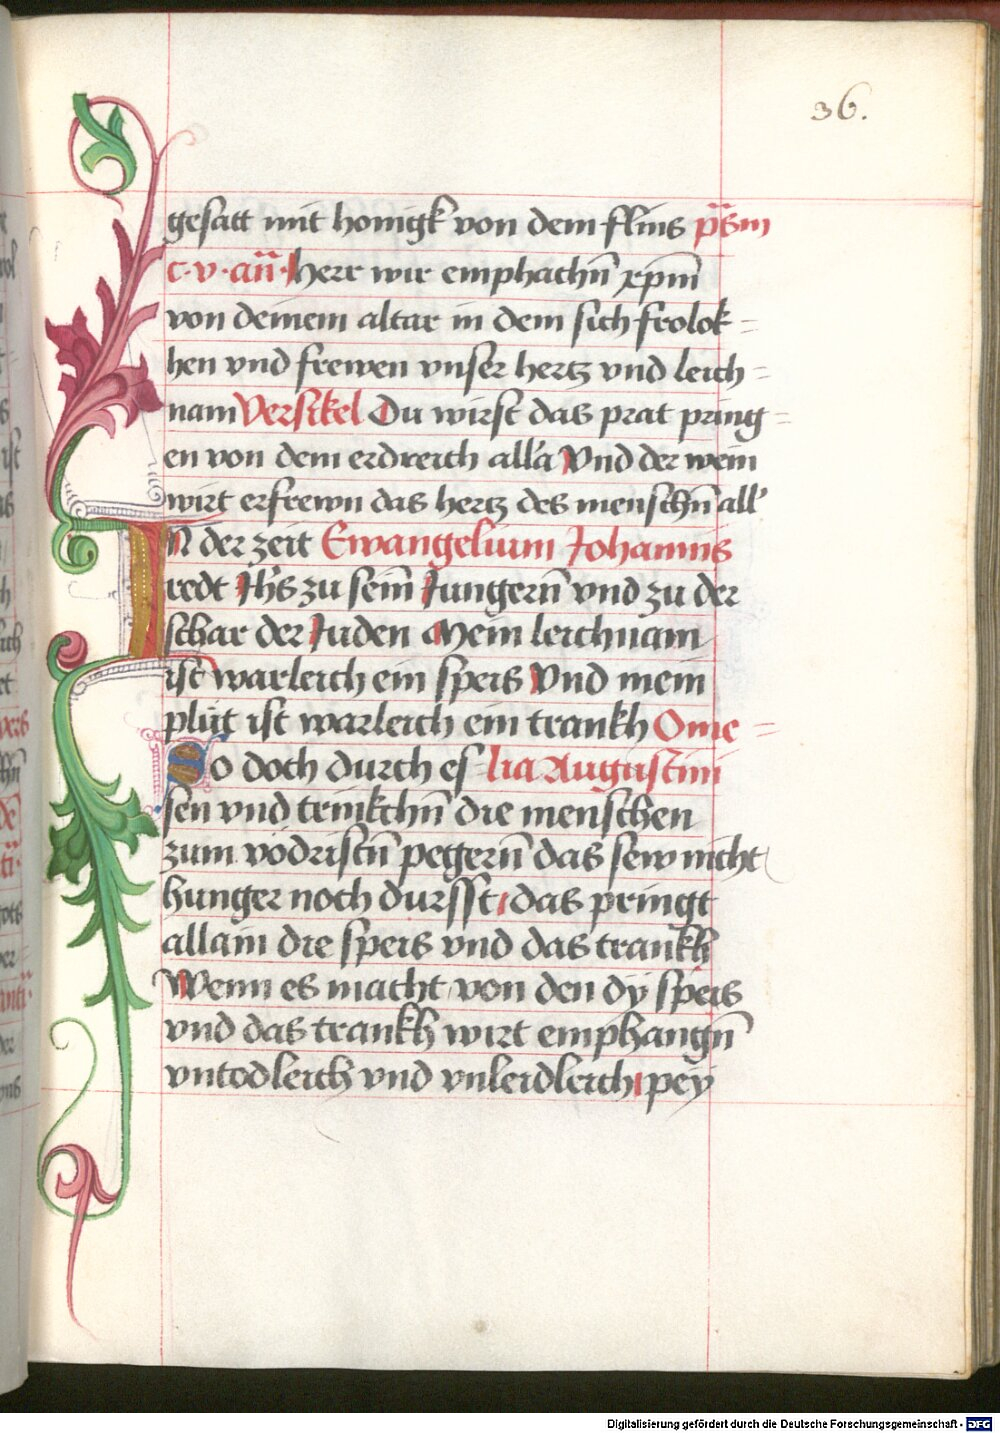 36.
gesatt mit honigk von dem flins p̄sm
c·v·an̄· Herr wir emphachn̄ xp̄m
von deinem altar in dem sich frolok=
hen vnd frewen vnser hertz vnd leich=
nam Versikel Du wirst das prat pring=
en von dem erdreich all'a Vnd der wein
wirt erfrewn das hertz des menschn̄ all'
IN der zeit Ewangelium Johannis
redt Jhs zu sein̄ Jungern̄ vnd zu der
schar der Juden Mein leichnam
ist warleich ein speis Vnd mein
plůt ist warleich ein trankh Ome=
So doch durch es lia Augustini
sen vnd trinkchn̄ die menschen
zum vödristn̄ pegern̄ das sew nicht
hunger noch dursst, das pringt
allain die speis vnd das trankh
Wenn es macht von den dÿ speis
vnd das trankh wirt emphangn̄
vntodleich vnd vnleidleich, peÿ
Digitalisierung gefördert durch die Deutsche Forschungsgemeinschaft - DFG